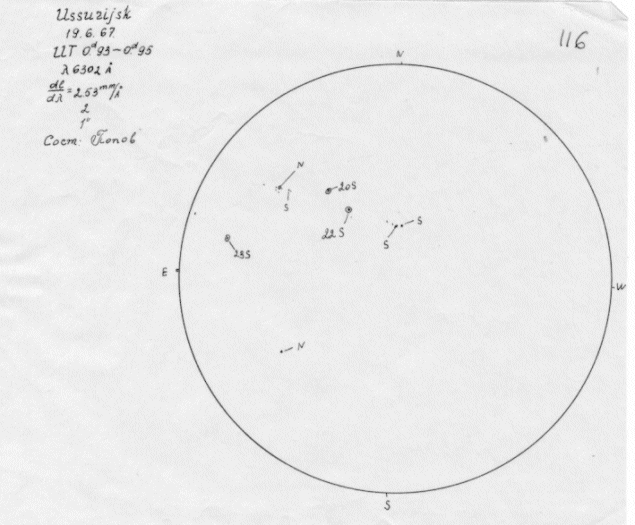 Ussurijsk
19.6.67.
UT 0ᵈ93-0ᵈ95
λ 6302 Å
dl/dλ = 2.53 mm/Å
2
1"
Сост: Попов
116
N
N
20S
S
22S
S
S
23S
E
W
N
S